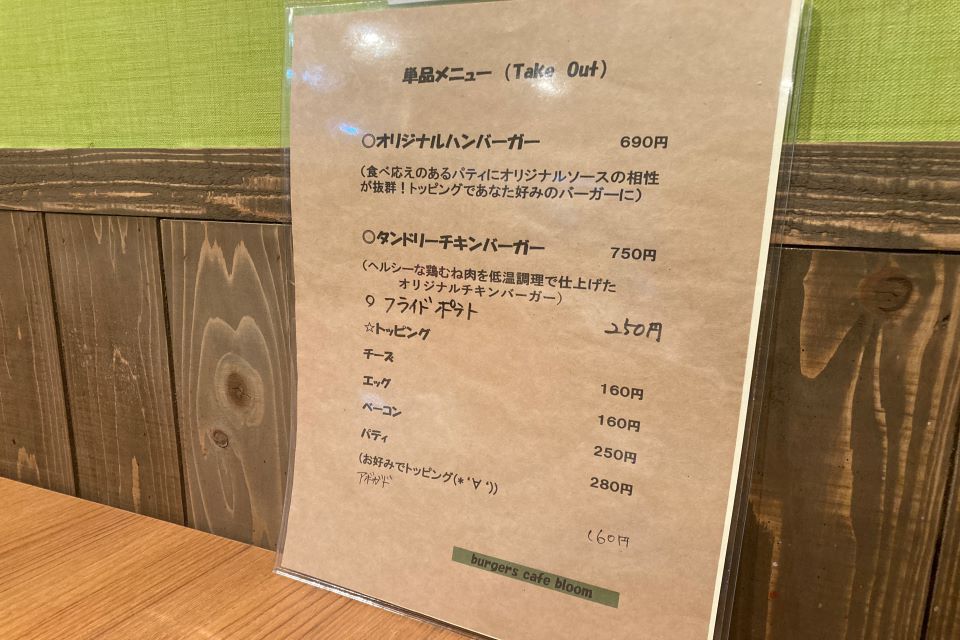 単品メニュー (Take Out)
○オリジナルハンバーガー 690円
(食べ応えのあるパティにオリジナルソースの相性
が抜群！トッピングであなた好みのバーガーに)
○タンドリーチキンバーガー 750円
(ヘルシーな鶏むね肉を低温調理で仕上げた
オリジナルチキンバーガー)
○ フライドポテト 250円
☆トッピング
チーズ 160円
エッグ 160円
ベーコン 250円
パティ 280円
(お好みでトッピング(*'∀'))
アボカド 160円
burgers cafe bloom